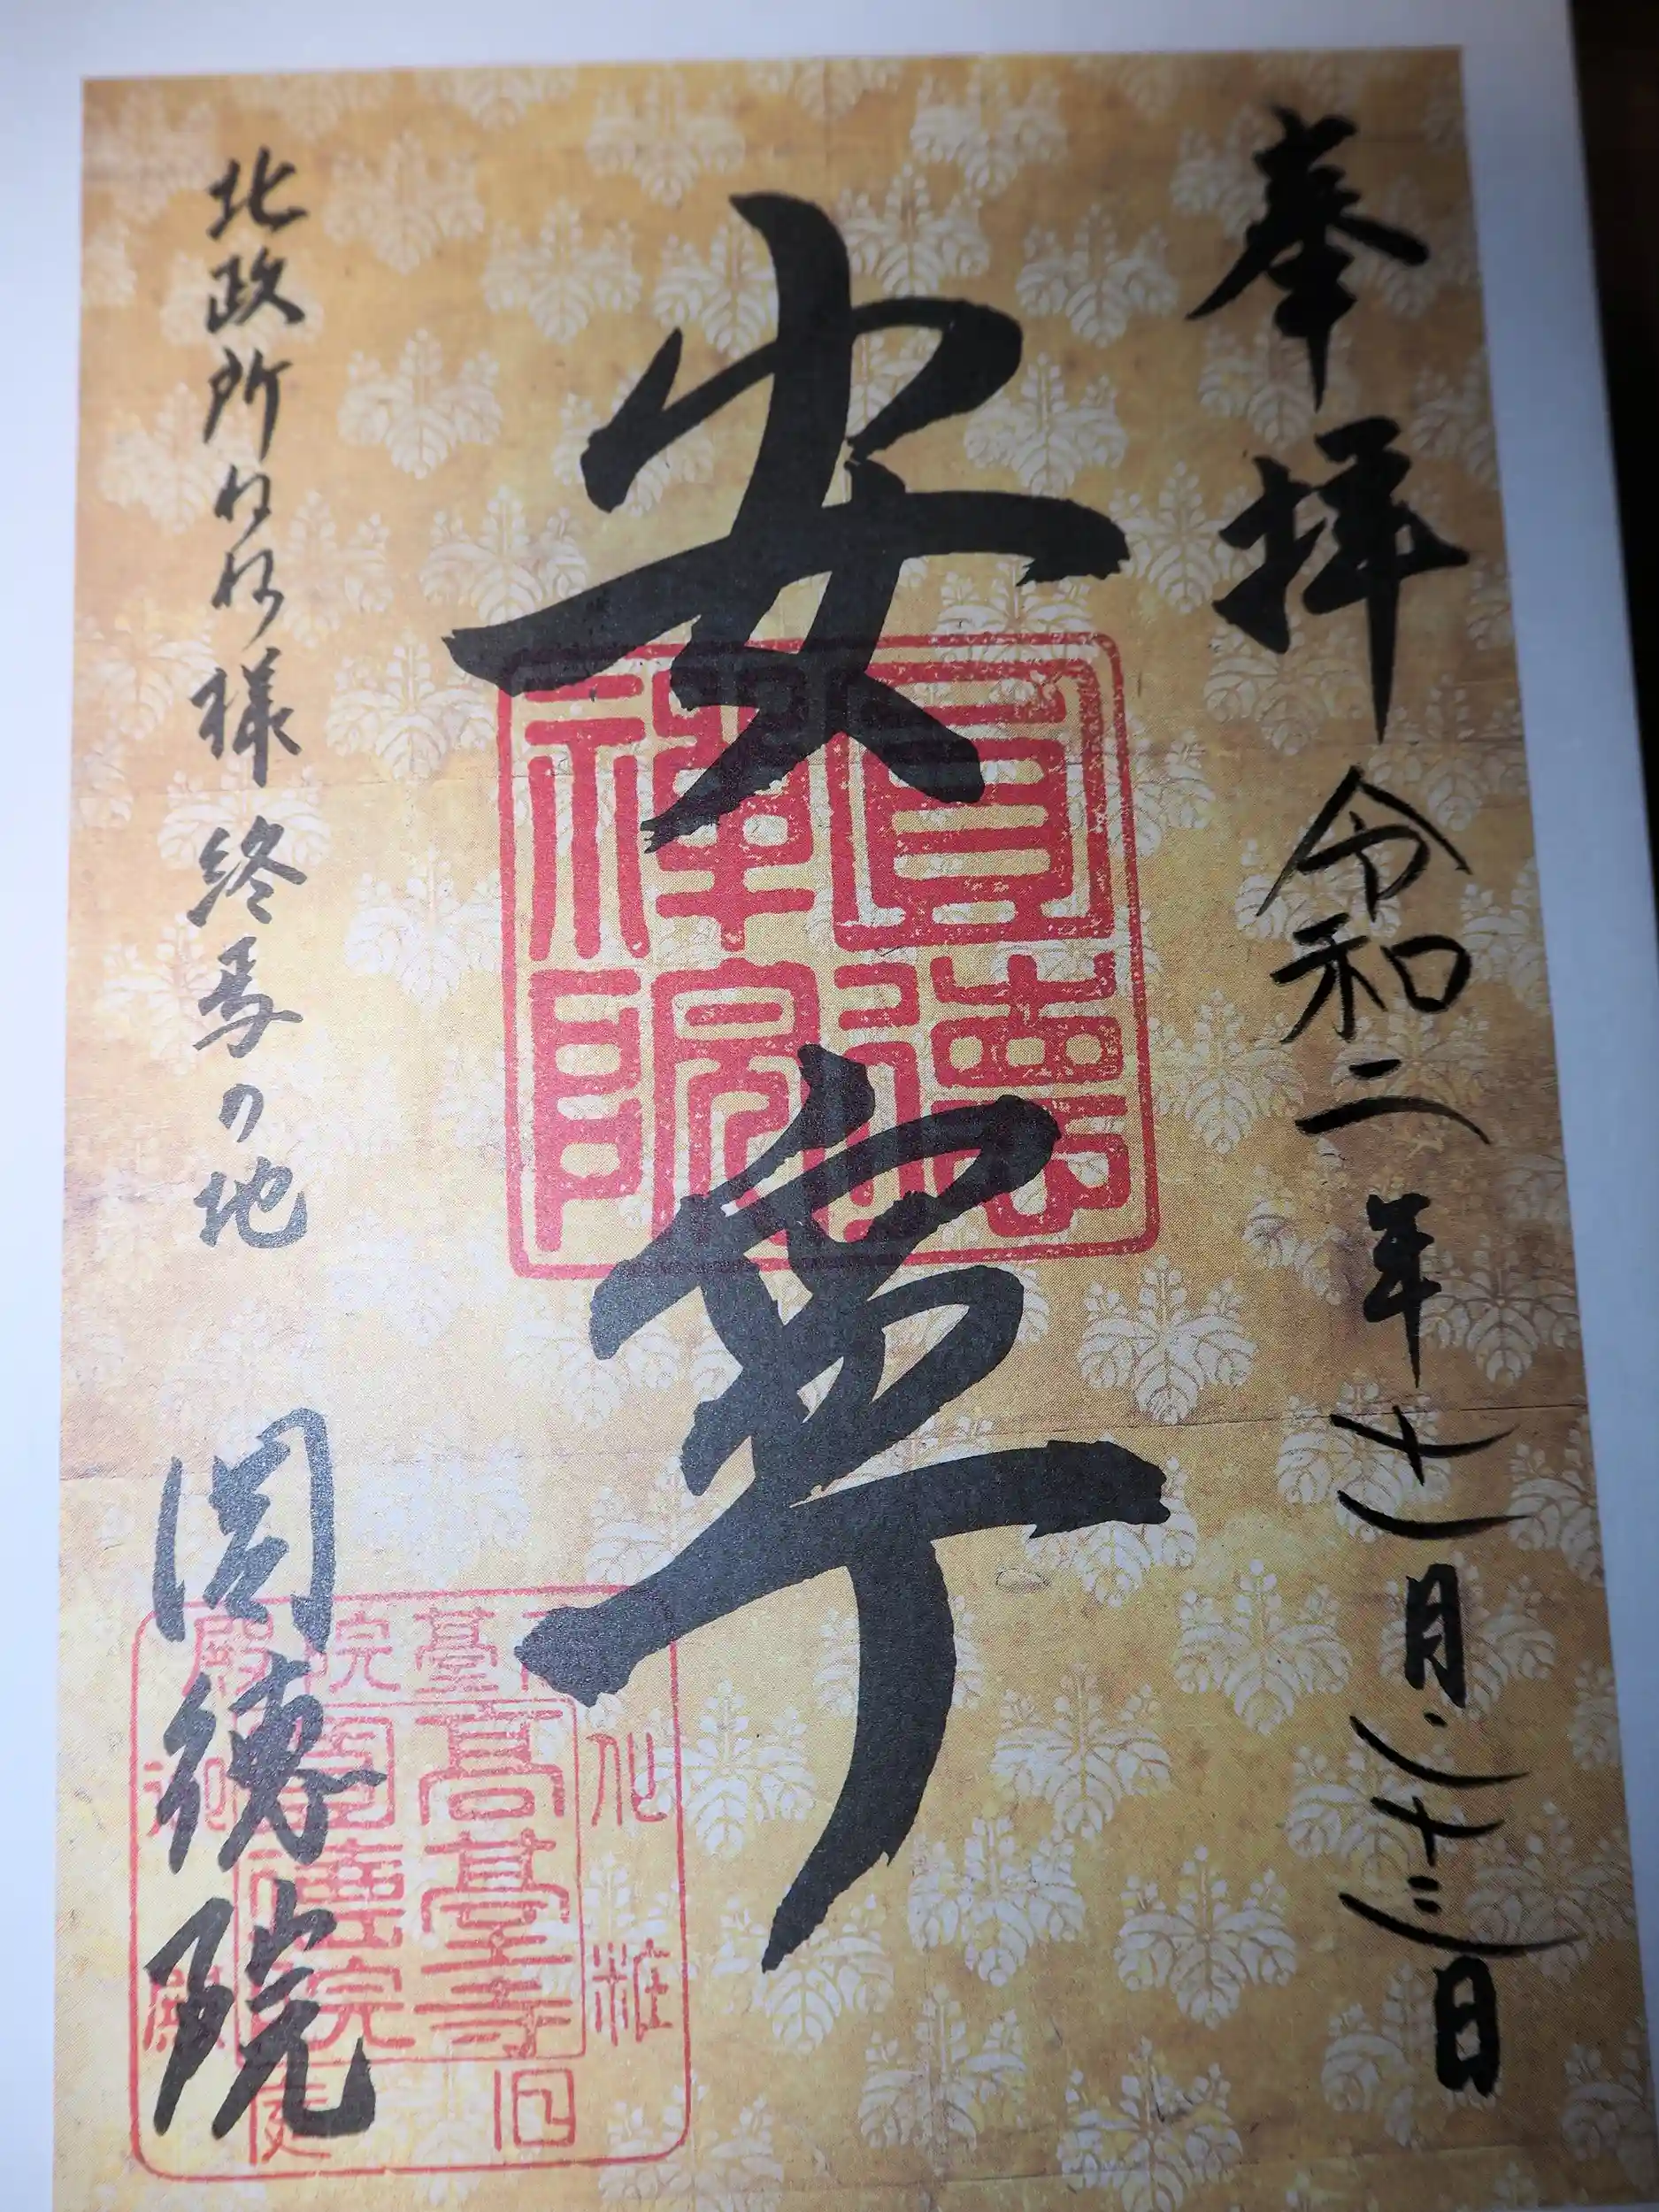 奉拝 令和二年十一月二十三日
安寧
圓德
禪院
北政所ねね様終焉の地 圓徳院
高臺寺
化粧